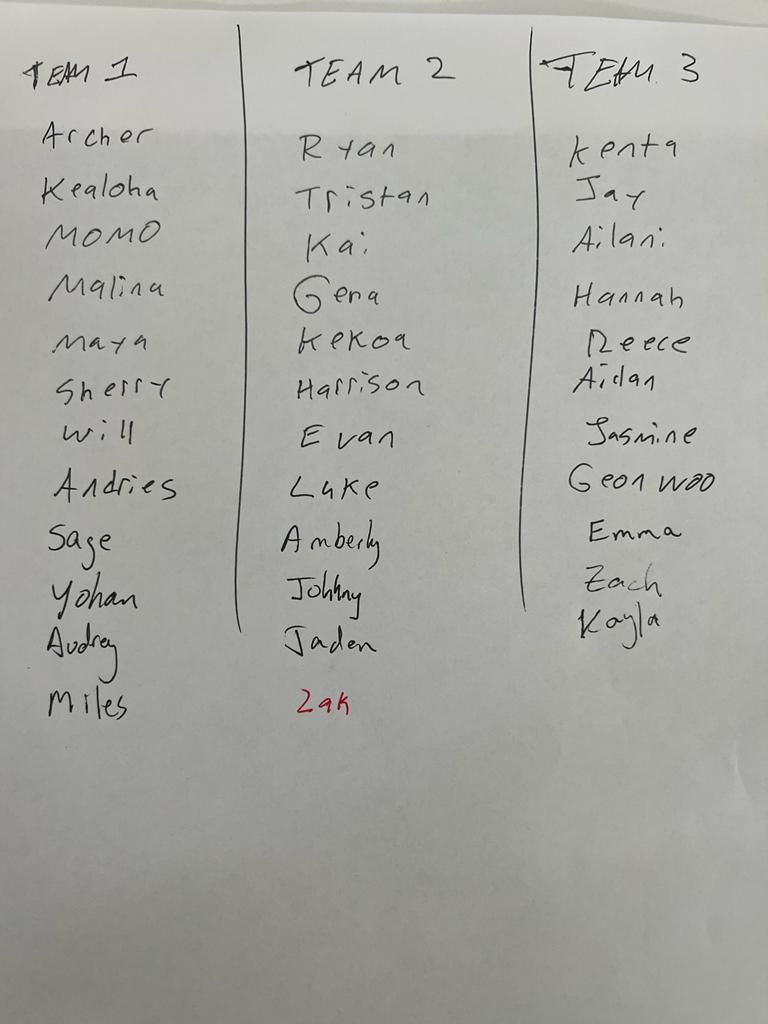 TEAM 1
Archer
Kealoha
MOMO
Malina
Maya
Sherry
Will
Andries
Sage
Yohan
Audrey
Miles
TEAM 2
Ryan
Tristan
Kai
Gena
Kekoa
Harrison
Evan
Luke
Amberly
Johnny
Jaden
Zak
TEAM 3
Kenta
Jay
Ailani
Hannah
Reece
Aidan
Jasmine
Geon woo
Emma
Zach
Kayla